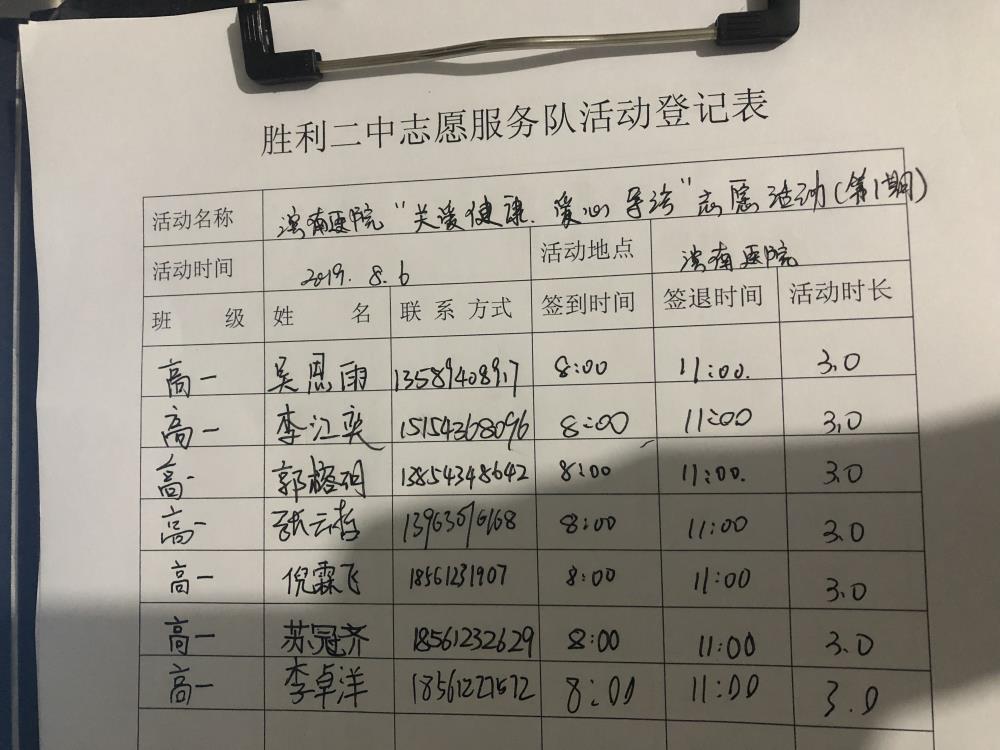 胜利二中志愿服务队活动登记表
活动名称 滨南医院“关爱健康、爱心导诊”志愿活动(第1期)
活动时间 2019.8.6 活动地点 滨南医院
班 级 姓 名 联 系 方式 签到时间 签退时间 活动时长
高一 吴恩雨 8:00 11:00. 3.0
高一 李江奕 15154368096 8:00 11:00 3.0
高一 郭榕玥 13854348642 8:00 11:00. 3.0
高一 张云哲 8:00 11:00 3.0
高一 倪霖飞 18561231907 8:00 11:00 3.0
高一 苏冠齐 18561232629 8:00 11:00 3.0
高一 李卓洋 8:00 11:00 3.0